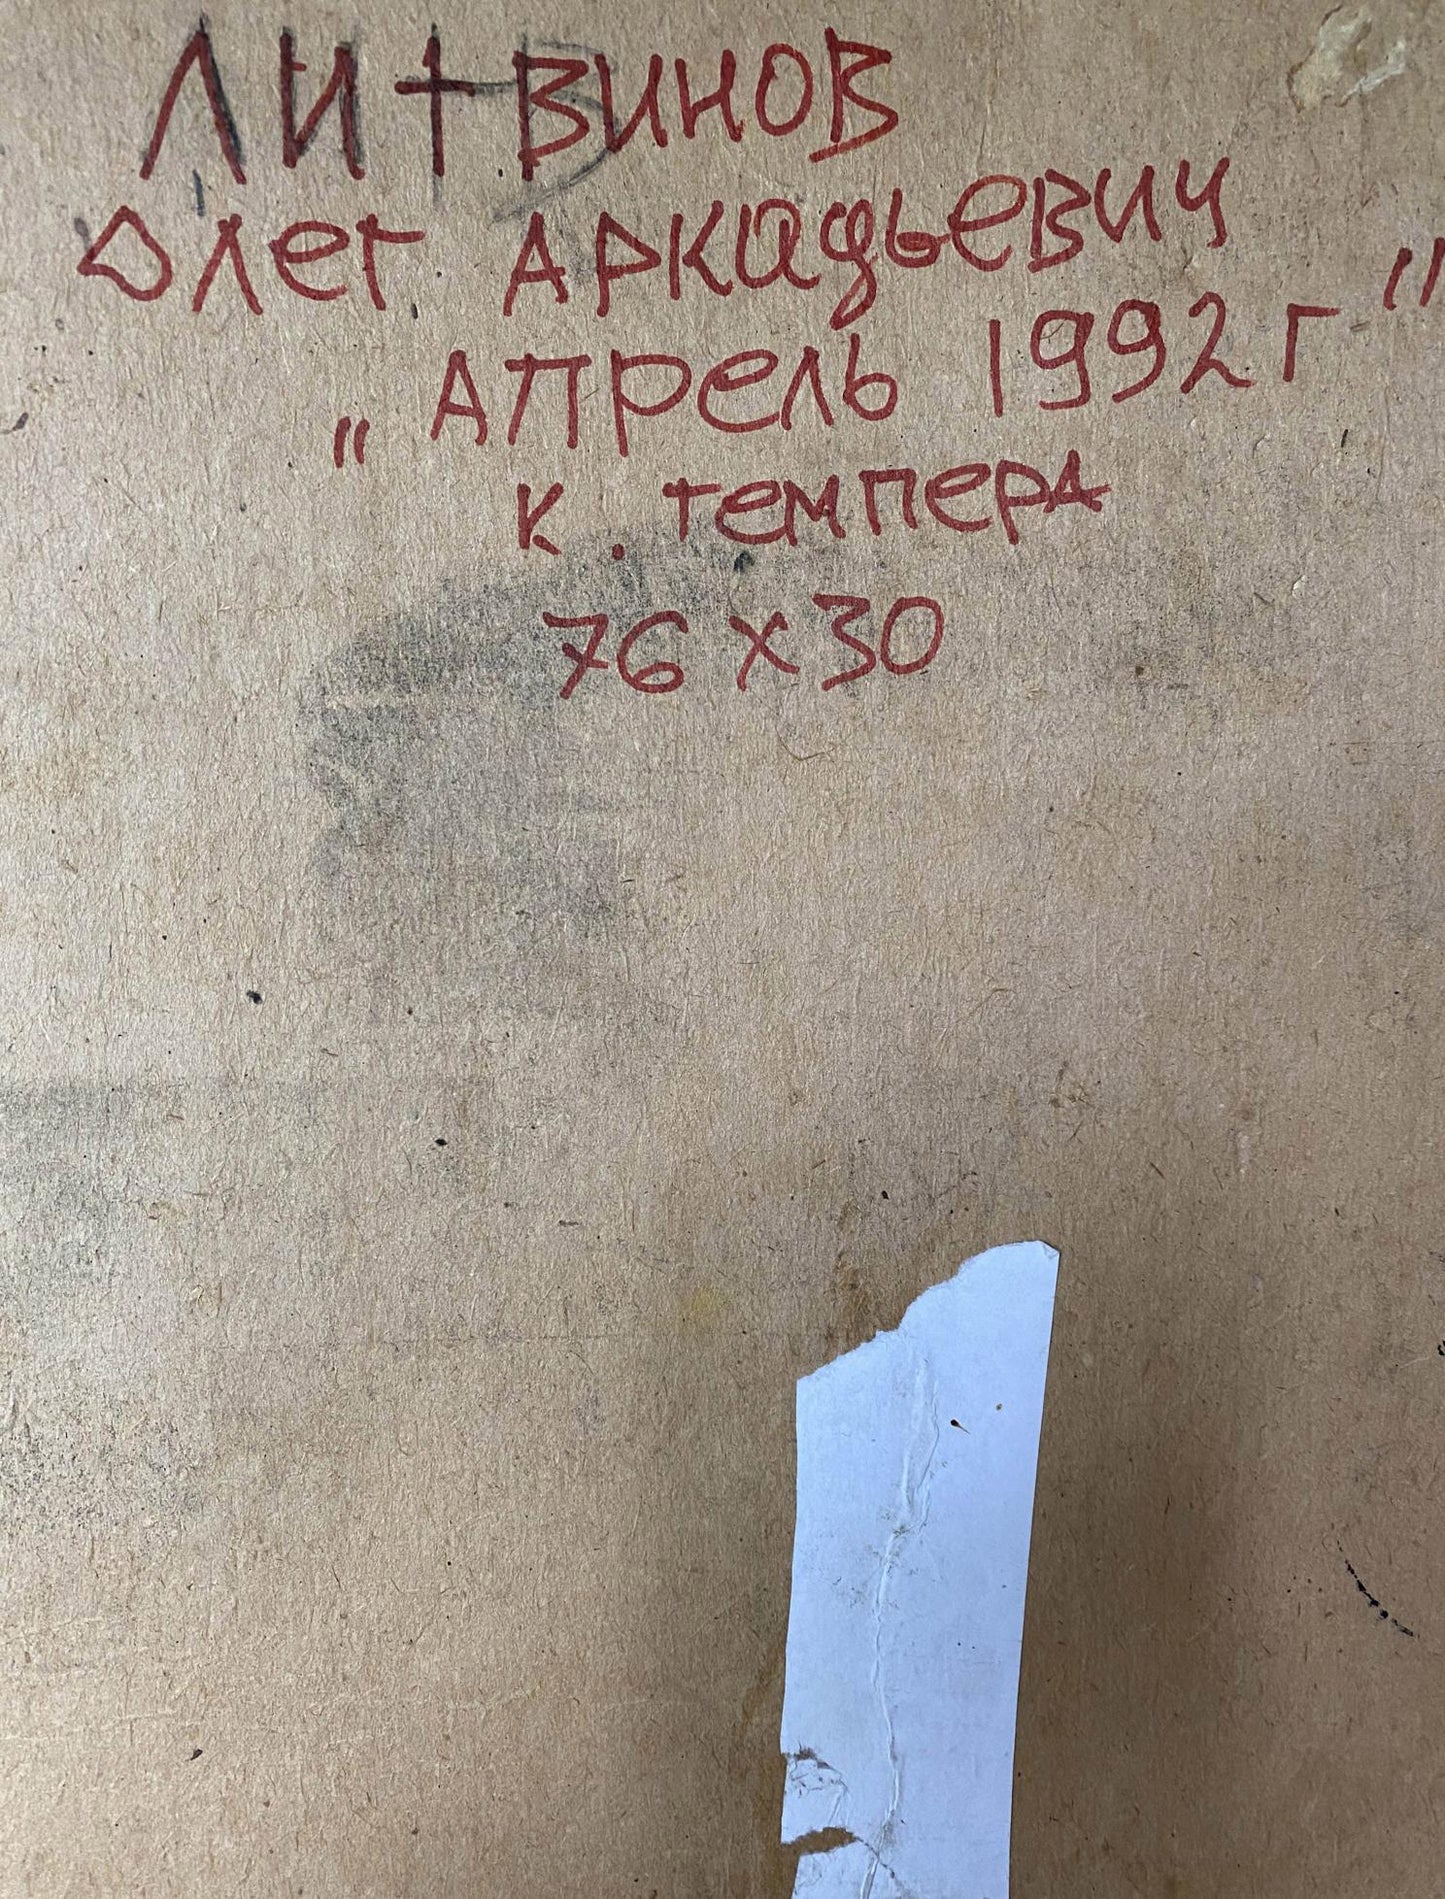 ЛИТВИНОВ
Олег Аркадьевич
„Апрель 1992 г"
к. темпера
76 х 30